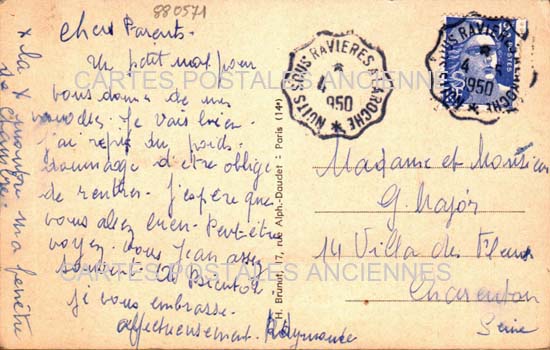 880571
Chers Parents.
Un petit mot pour
vous donner de mes
nouvelles. Je vais bien.
j'ai repris du poids.
dommage d'être obligé
de rentrer. J'espère que
vous allez bien. Peut-être
voyez vous Jean assez
souvent. A Bientôt
je vous embrasse.
affectueusement. Raymonde
x la x montre ma fenêtre
de chambre
H. Brunuf 17, rue Alph.-Daudet - Paris (14e)
NUITS SOUS RAVIERES A LAROCHE
4
1950
NUITS SOUS RAVIERES A LAROCHE
4
1950
POSTES
Madame et Monsieur
G. Major
14 Villa des Fleurs
Charenton
Seine
CARTES POSTALES ANCIENNES
CARTES POSTALES ANCIENNES